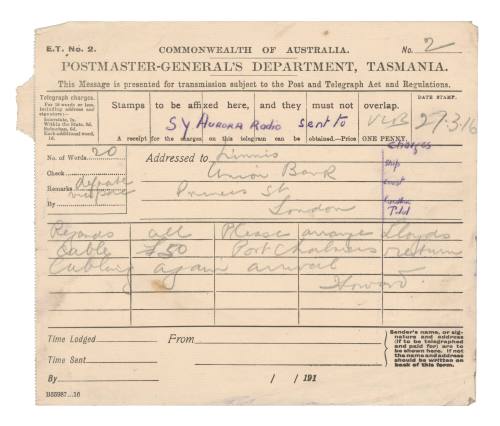 E.T. No. 2.
COMMONWEALTH OF AUSTRALIA.
No. 2
POSTMASTER-GENERAL'S DEPARTMENT, TASMANIA.
This Message is presented for transmission subject to the Post and Telegraph Act and Regulations.
Telegraph charges.
For 16 words or less, including address and signature:
Interstate, 1s.
Within the State, 9d.
Suburban, 6d.
Each additional word, 1d.
Stamps to be affixed here, and they must not overlap.
SY Aurora Radio sent to VLB
A receipt for the charges on this telegram can be obtained.—Price ONE PENNY.
DATE STAMP.
27.3.16
No. of Words 20
Check
Remarks
By
Addressed to
Union Bank
Princes St
London
Charges
Ship
Coast
Total
Regards all Please arrange Lloyds
Cable £50 Port Chalmers return
Cabling again arrival
Howard
Time Lodged
From
Time Sent
By / / 191
Sender's name, or signature and address (if to be telegraphed and paid for) are to be shown here. If not the name and address should be written on back of this form.
B55987...16